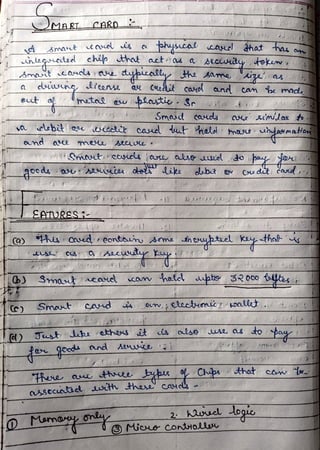 SMART CARD :-
A smart card is a physical card that has an
integrated chip that act as a security token.
Smart cards are typically the same size as
a driving license or credit card and can be made
out of metal or plastic. In
Smart cards are similar to
a debit or credit card but hold more information
and are more secure.
Smart cards are also used to pay for
goods or services just like debit or credit card.
FEATURES :-
(a) This card contain some encrypted key that is
use as a security key.
(b) Smart card can hold upto 32000 bytes.
(c) Smart card is an electronic wallet.
(d) Just like others it is also use as to pay
for goods and service.
There are three types of Chips that can be
associated with these cards -
① Memory only 2. Wired logic
③ Micro Controller